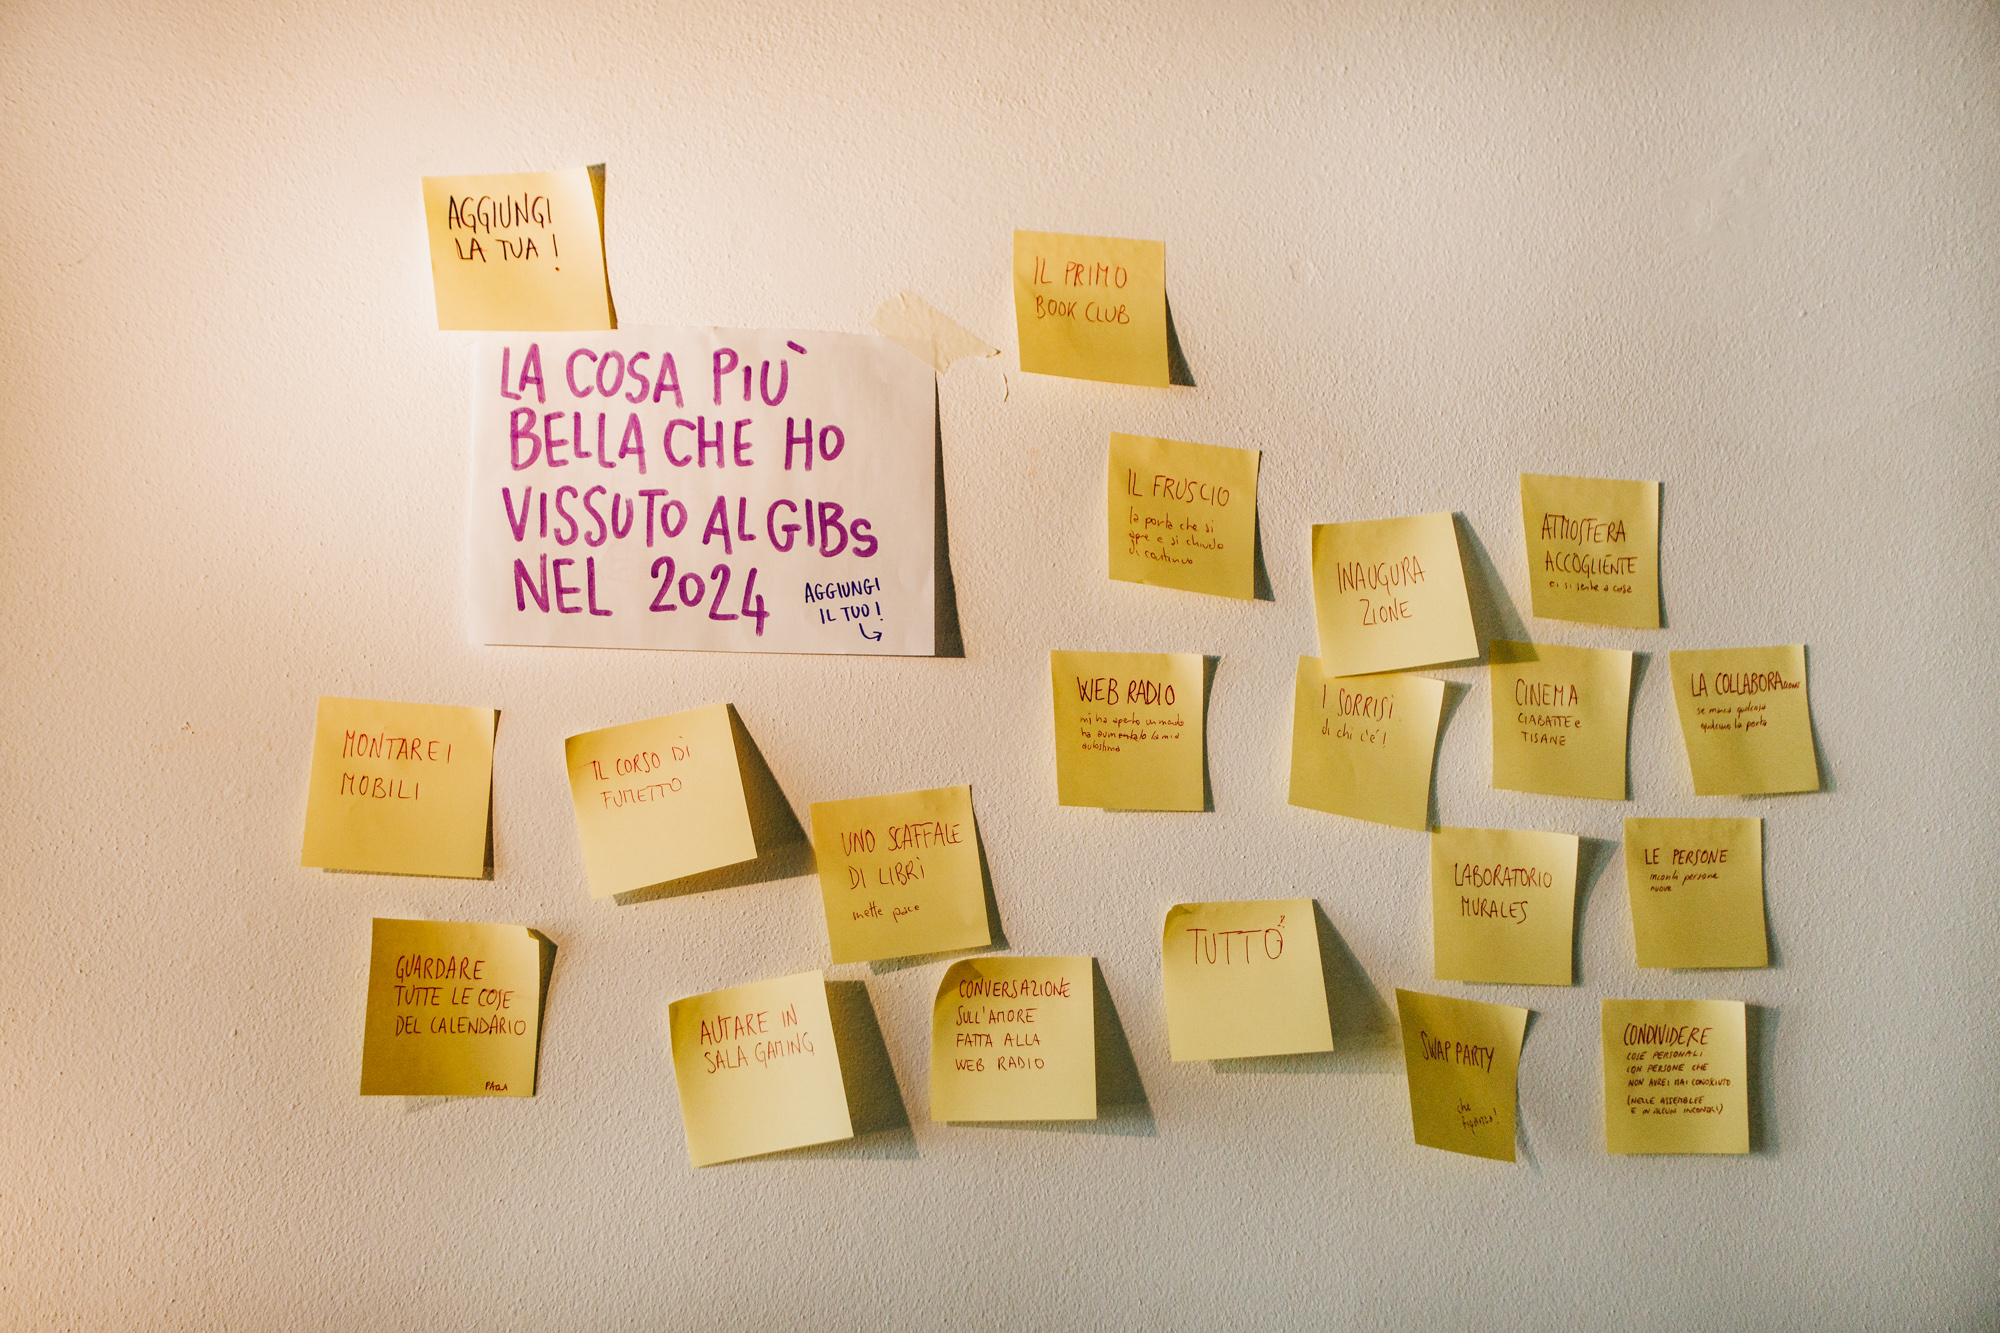 AGGIUNGI
LA TUA!
LA COSA PIÙ
BELLA CHE HO
VISSUTO AL GIBS
NEL 2024
AGGIUNGI
IL TUO!
IL PRIMO
BOOK CLUB
IL FRUSCIO
la porta che si
apre e si chiude
di continuo
INAUGURA
ZIONE
ATMOSFERA
ACCOGLIENTE
ci si sente a casa
WEB RADIO
mi ha aperto un mondo
ha aumentato la mia
autostima
I SORRISI
di chi c'é!
CINEMA
CIABATTE e
TISANE
LA COLLABORAZIONE
se manca qualcosa
qualcuno la porta
MONTARE I
MOBILI
IL CORSO DI
FUMETTO
UNO SCAFFALE
DI LIBRI
mette pace
LABORATORIO
MURALES
LE PERSONE
incontri persone
nuove
GUARDARE
TUTTE LE COSE
DEL CALENDARIO
AUTARE IN
SALA GAMING
CONVERSAZIONE
SULL'AMORE
FATTA ALLA
WEB RADIO
TUTTO
SWAP PARTY
che
figanza!
CONDIVIDERE
COSE PERSONALI
CON PERSONE CHE
NON AVREI MAI CONOSCIUTO
(NELLE ASSEMBLEE
E IN ALCUNI INCONTRI)